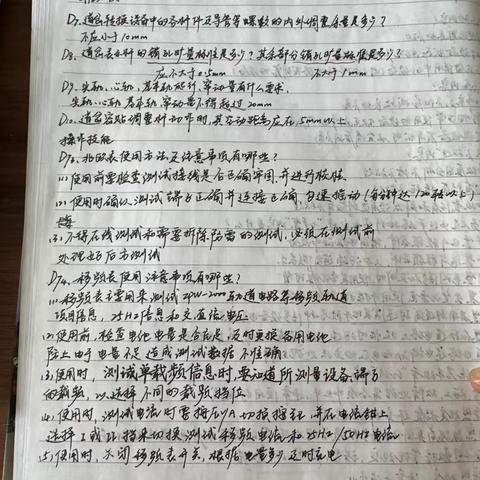 D7. 道岔转换设备中的各种杆及导管等螺纹的内外调整余量是多少?
不应小于10mm
D8. 道岔表示杆的销孔旷量标准是多少? 其余部分销孔旷量标准是多少?
应不大于0.5mm 不大于1mm
D9. 尖轨、心轨、基本轨爬行、窜动量有什么要求.
尖轨、心轨、基本轨 窜动量不得超过20mm
D10. 道岔密贴调整杆动作时,其空动距离应在5mm以上
操作技能
使用方法及注意事项有哪些?
(1) 使用前要检查测试接线是否正确牢固,并进行校核
(2) 使用时确认测试端子正确并连接正确,匀速摇动(每分钟达120转以上)
(3) 不得在线测试和需要拆除防雷的测试,必须在测试前
处理好后方测试
D74. 移频表使用注意事项有哪些?
(1) 移频表主要用来测试ZPW-2000轨道电路等移频轨道
信息, 25HZ信息和交直流电压
(2) 使用前,检查电池电量是否充足,及时更换备用电池
防止由于电量不足造成测试数据不准确
(3) 使用时,测试单载频信息时,要知道所测量设备端子
的载频,以选择不同的载频档位
(4) 使用时,测试电流时需将压/A切换按钮,并在电流钳上
选择I或II档来切换测试移频电流和25HZ/50HZ电流
(5) 使用时,关闭移频表开关,根据电量多少及时充电